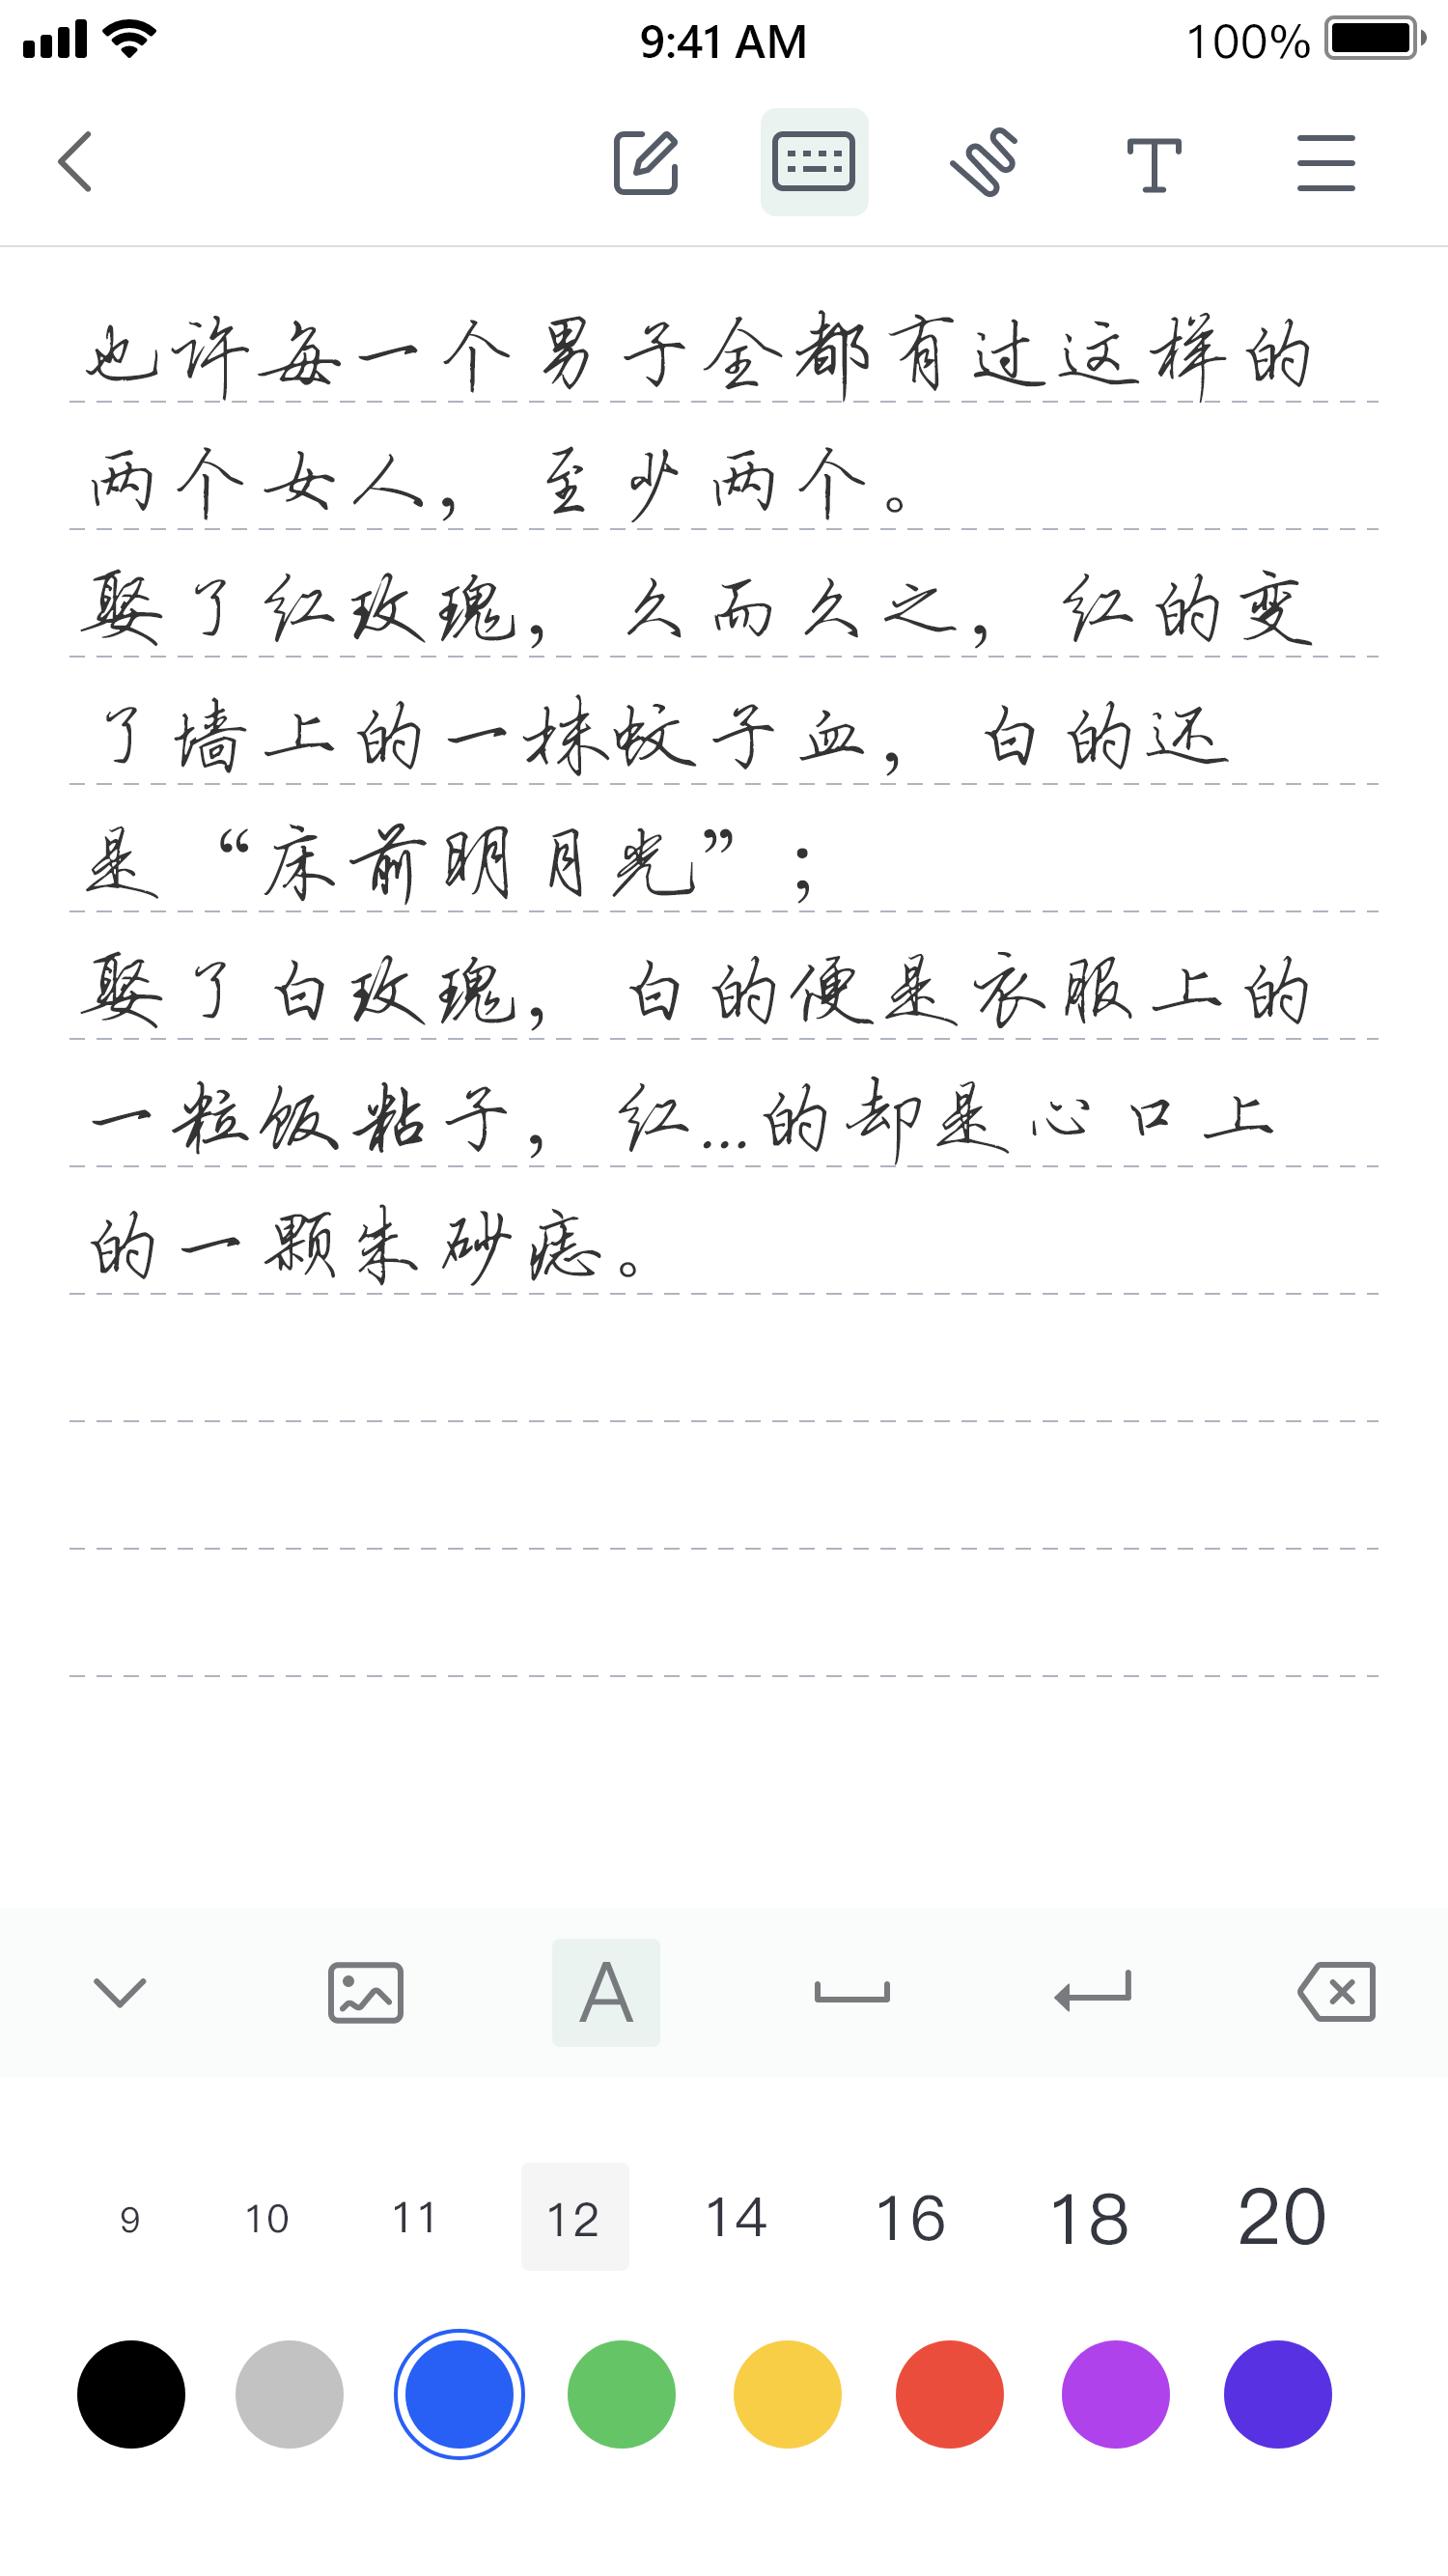 9:41 AM 100%
也许每一个男子全都有过这样的
两个女人，至少两个。
娶了红玫瑰，久而久之，红的变
了墙上的一抹蚊子血，白的还
是“床前明月光”；
娶了白玫瑰，白的便是衣服上的
一粒饭粘子，红...的却是心口上
的一颗朱砂痣。
A
9 10 11 12 14 16 18 20